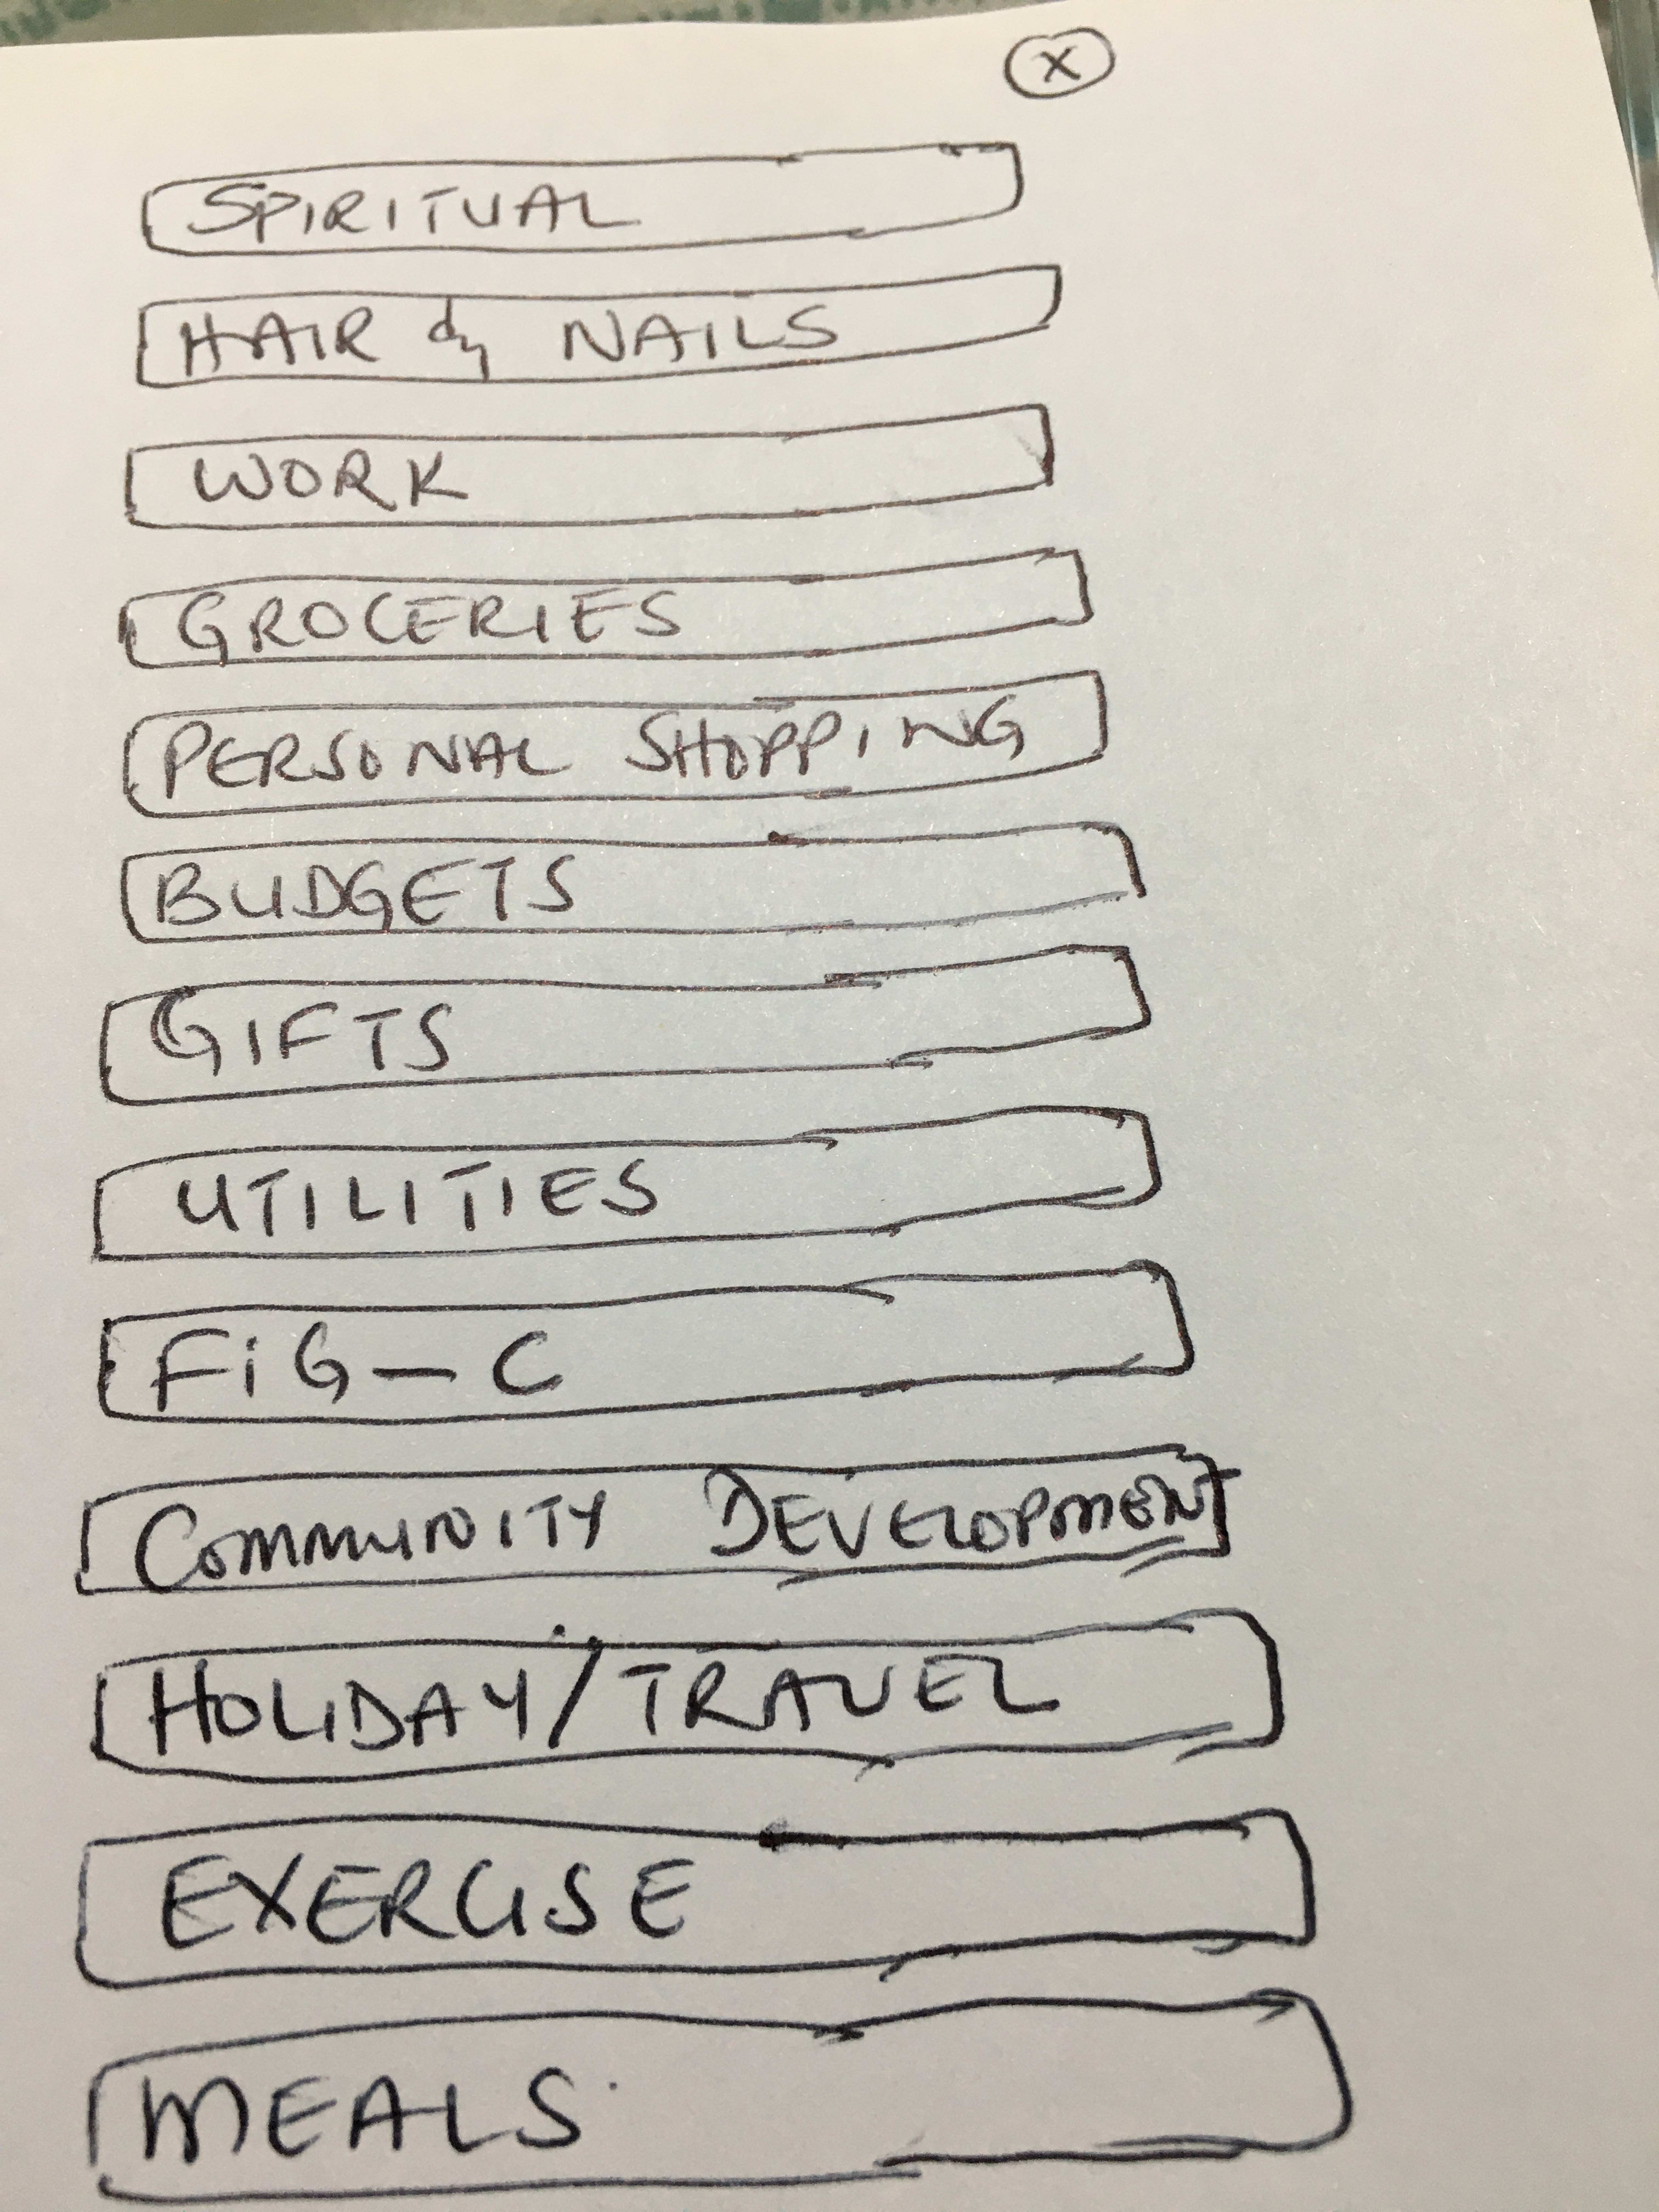 X
SPIRITUAL
HAIR & NAILS
WORK
GROCERIES
PERSONAL SHOPPING
BUDGETS
GIFTS
UTILITIES
FiG-C
COMMUNITY DEVELOPMENT
HOLIDAY/TRAVEL
EXERCISE
MEALS